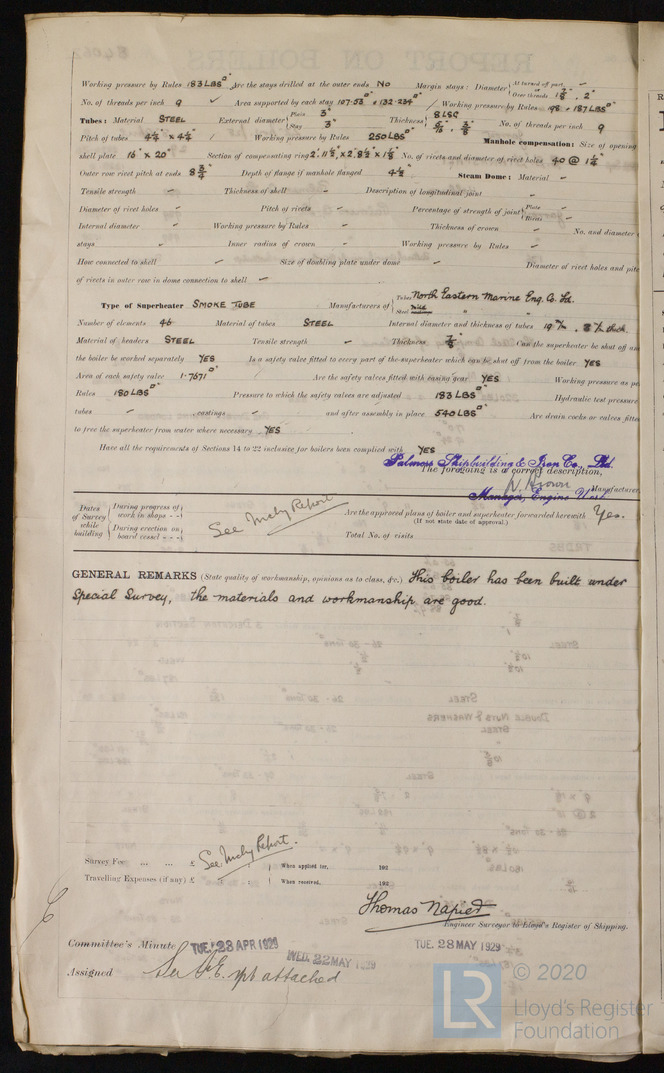 Working pressure by Rules 183 LBS □" Are the stays drilled at the outer ends No Margin stays: Diameter { At turned off part, — Over threads 1 7/8" . 2"
No. of threads per inch 9 ✓ Area supported by each stay 107.53 □" × 132.234 □" Working pressure by Rules 198 - 187 LBS □"
Tubes: Material STEEL External diameter { Plain 3" Stay 3" Thickness { 8 LSG 5/16" . 3/8" No. of threads per inch 9
Pitch of tubes 4 1/4" × 4 1/4" Working pressure by Rules 250 LBS □" Manhole compensation: Size of opening
shell plate 16" × 20" Section of compensating ring No. of rivets and diameter of rivet holes 40 @ 1 1/4"
Outer row rivet pitch at ends 8 3/4" Depth of flange if manhole flanged 4 1/2" Steam Dome: Material —
Tensile strength — Thickness of shell — Description of longitudinal joint —
Diameter of rivet holes — Pitch of rivets — Percentage of strength of joint { Plate — Rivets —
Internal diameter — Working pressure by Rules — Thickness of crown — No. and diameter
stays — Inner radius of crown — Working pressure by Rules —
How connected to shell — Size of doubling plate under dome — Diameter of rivet holes and pitc
of rivets in outer row in dome connection to shell —
Type of Superheater SMOKE TUBE Manufacturers of { Tubes North Eastern Marine Eng. Co. Ld.
Steel " "
Number of elements 46 Material of tubes STEEL Internal diameter and thickness of tubes
Material of headers STEEL Tensile strength — Thickness 7/8" Can the superheater be shut off an
the boiler be worked separately YES Is a safety valve fitted to every part of the superheater which can be shut off from the boiler YES
Area of each safety valve 1.7671 □" Are the safety valves fitted with easing gear YES Working pressure as pe
Rules 180 LBS □" Pressure to which the safety valves are adjusted 183 LBS □" Hydraulic test pressure
tubes — , castings — and after assembly in place 540 LBS □" Are drain cocks or valves fitte
to free the superheater from water where necessary YES
Have all the requirements of Sections 14 to 22 inclusive for boilers been complied with YES
Palmers Shipbuilding & Iron Co., Ltd.
The foregoing is a correct description,
Brown Manufacturer
Manager, Engine Works
Dates of Survey while building { During progress of work in shops - - } { During erection on board vessel - - - } See Mchy Report Are the approved plans of boiler and superheater forwarded herewith Yes.
(If not state date of approval.)
Total No. of visits
GENERAL REMARKS (State quality of workmanship, opinions as to class, &c.) This boiler has been built under
Special Survey, the materials and workmanship are good.
Survey Fee ... ... £ See Mchy Report. When applied for, 192
Travelling Expenses (if any) £ : : When received, 192
Thomas Napier
Engineer Surveyor to Lloyd's Register of Shipping.
Committee's Minute TUE. 23 APR 1929 WED. 22 MAY 1929 TUE. 28 MAY 1929
Assigned See F.E. rpt attached
LR © 2020
Lloyd's Register
Foundation